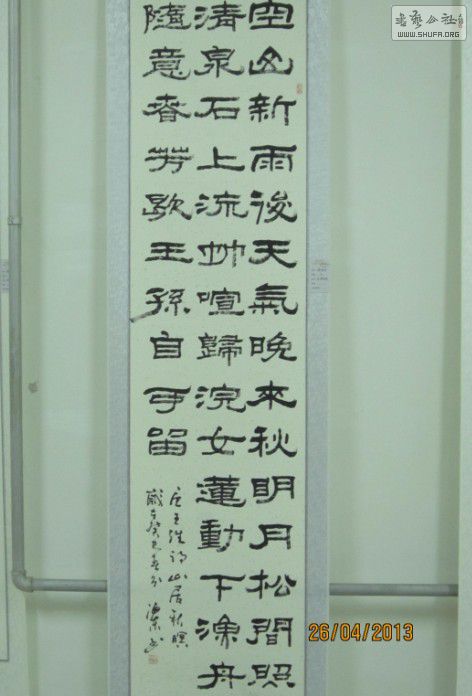 空山新雨後天氣晚來秋明月松間照
清泉石上流竹喧歸浣女蓮動下漁舟
隨意春芳歇王孫自可留
唐王維詩山居秋暝
歲在癸巳春分
書藝公社
WWW.SHUFA.ORG
26/04/2013